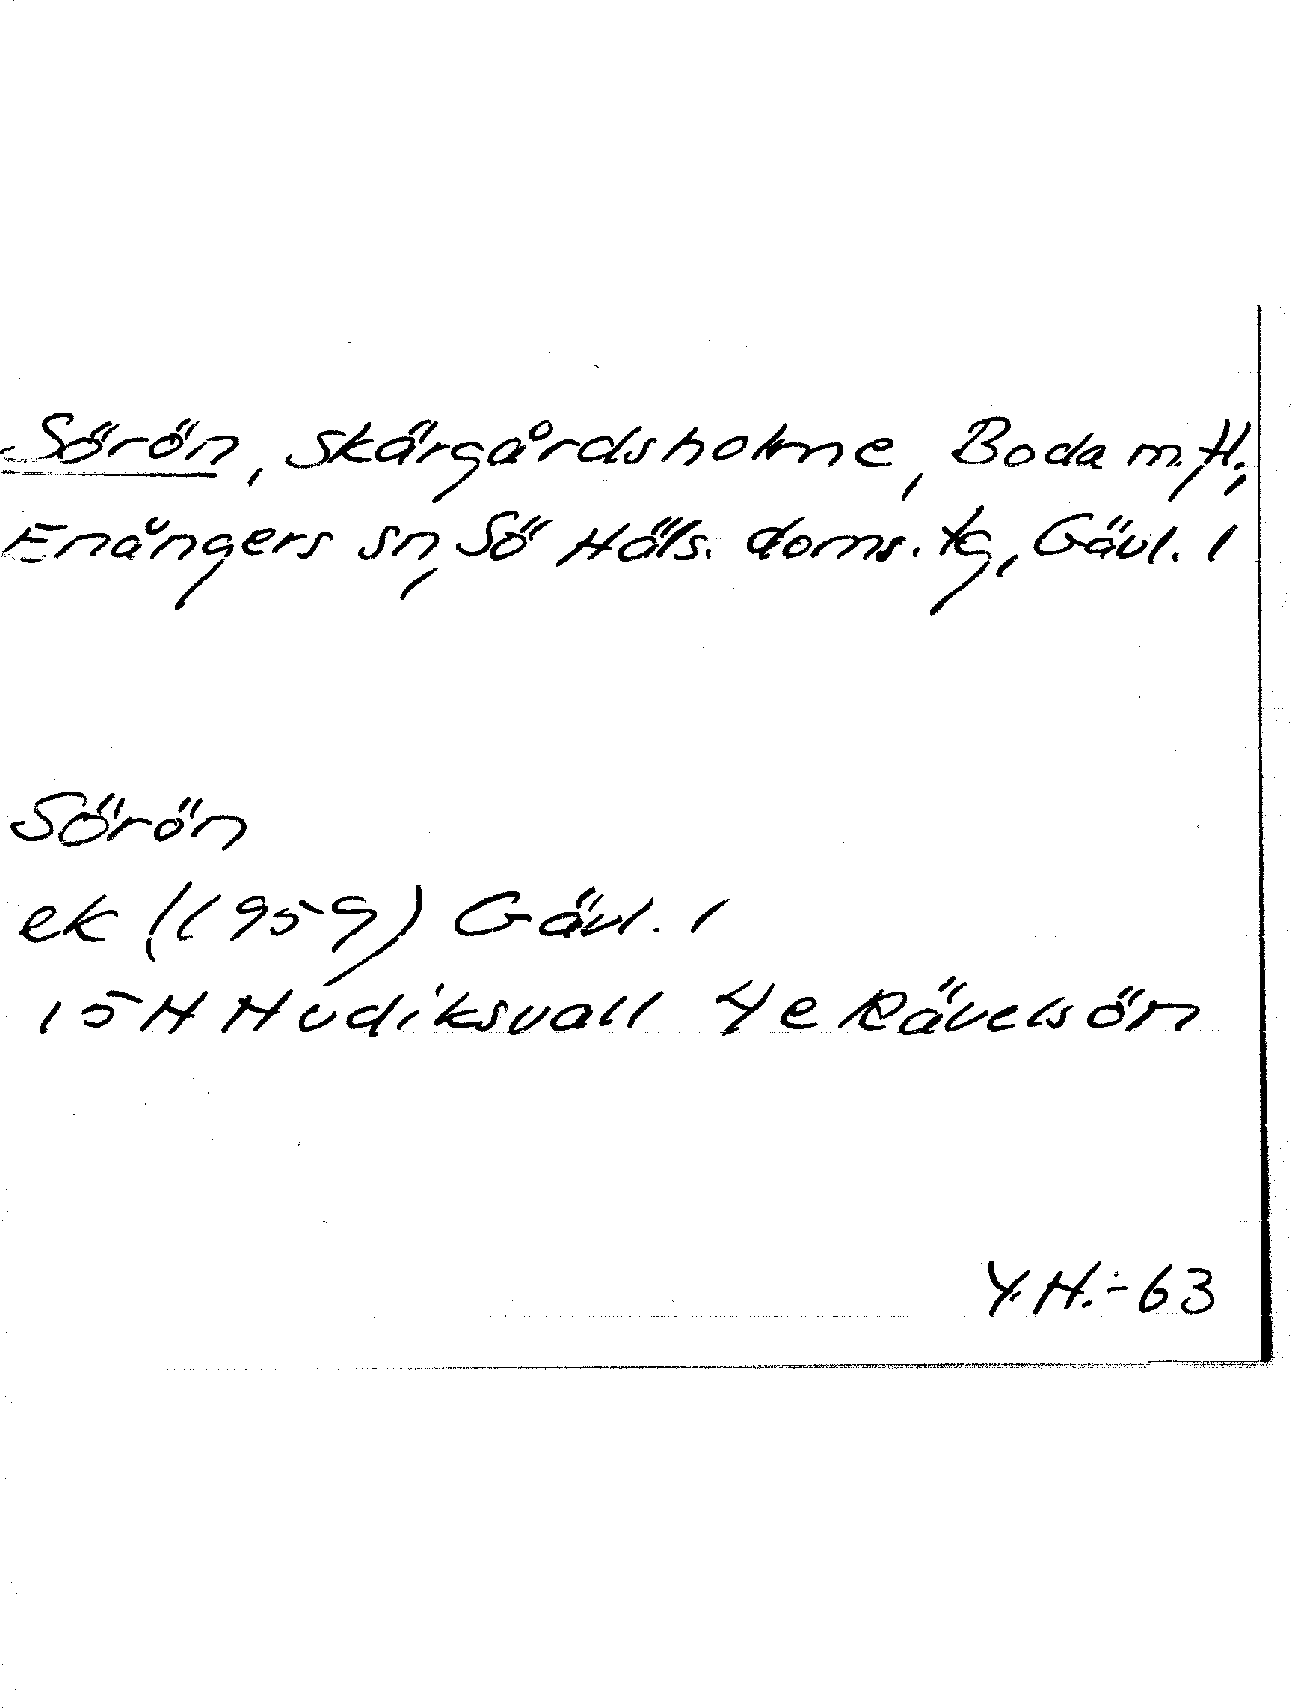 Sörön, Skärgårdsholme, Boda m.fl.,
Enångers sn, Sö Häls. doms. tg, Gävl. l
Sörön
ek (1959) Gävl. l
15H Hudiksvall 4e Rävelsön
Y.H.-63